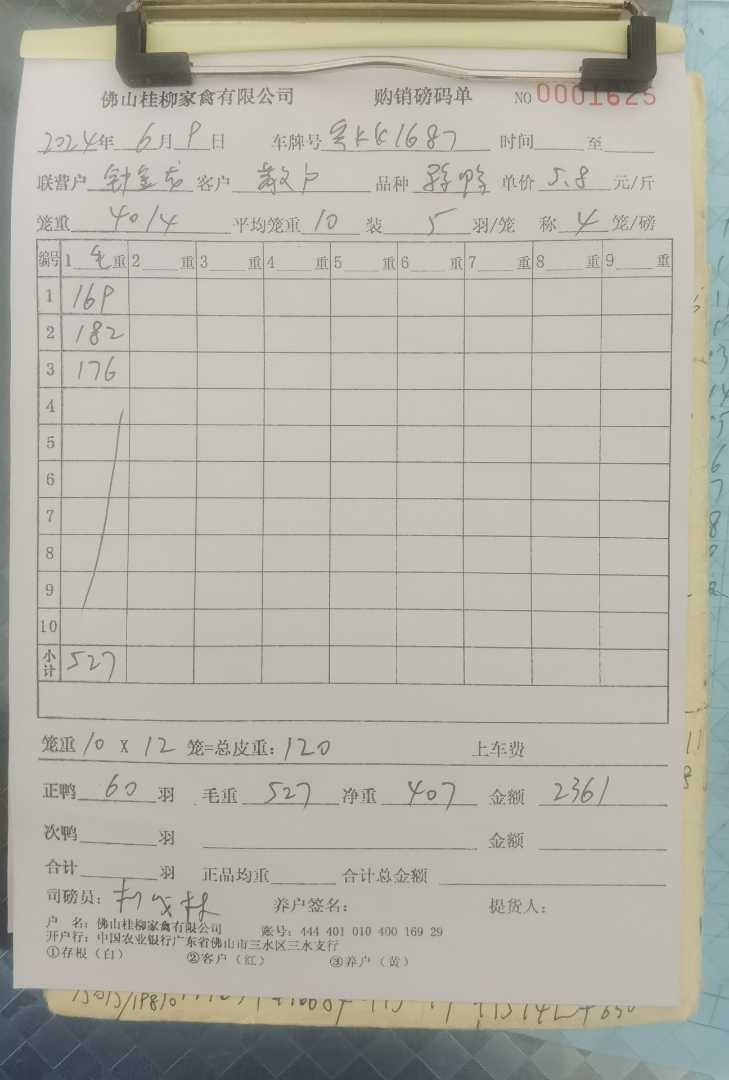 佛山桂柳家禽有限公司 购销磅码单 NO 0001625
2024年 6月 9日 车牌号 KK1687 时间 至
联营户 钟金 客户 散户 品种 鸭 单价 5.8 元/斤
笼重 40/4 平均笼重 10 装 5 羽/笼 称 4 笼/磅
编号 1 毛重 2 重 3 重 4 重 5 重 6 重 7 重 8 重 9 重
1 169
2 182
3 176
4
5
6
7
8
9
10
小计 527
笼重 10 X 12 笼=总皮重: 120 上车费
正鸭 60 羽 毛重 527 净重 407 金额 2361
次鸭 羽 金额
合计 羽 正品均重 合计总金额
司磅员: 养户签名: 提货人:
户 名: 佛山桂柳家禽有限公司 账号: 444 401 010 400 169 29
开户行: 中国农业银行广东省佛山市三水区三水支行
①存根（白） ②客户（红） ③养户（黄）